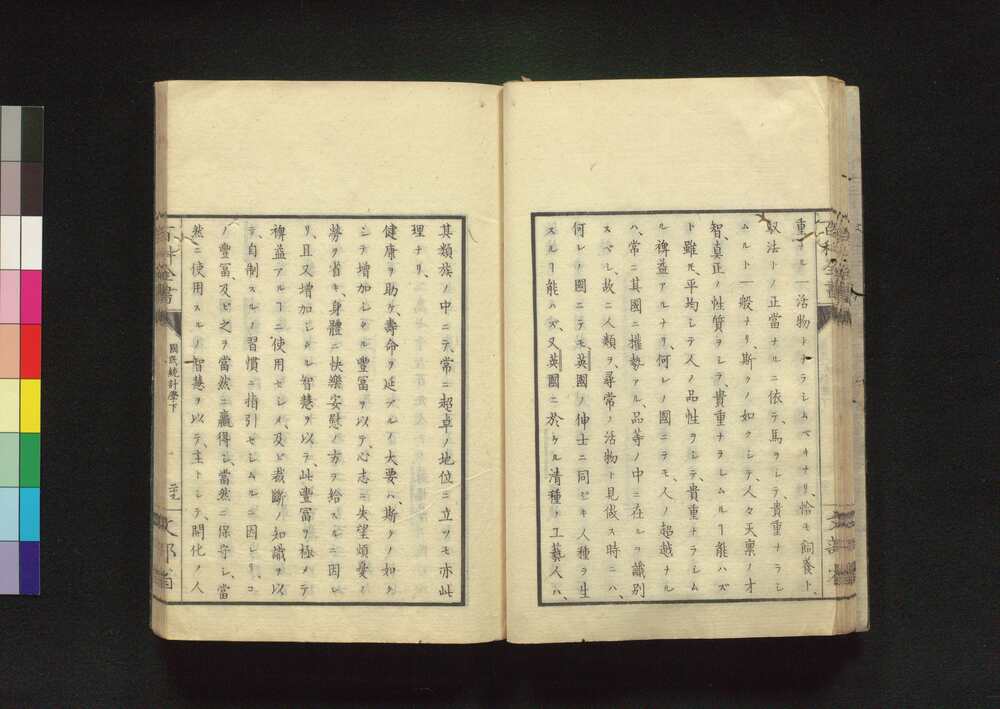 重ナル一活物トナラシムベキナリ、恰モ飼養ト、
馭法トノ正當ナルニ依テ、馬ヲシテ貴重ナラシ
ムルト一般ナリ、斯クノ如クシテ、人々天禀ノ才
智、真正ノ性質ヲシテ、貴重ナラシムルヿ能ハズ
ト雖モ、平均シテ人ノ品性ヲシテ、貴重ナラシム
ル裨益アルナリ、何レノ國ニテモ、人ノ超越ナル
ハ、常ニ其國ニ權勢アル、品等ノ中ニ在ルヲ識別
スベシ、故ニ人類ヲ、尋常ノ活物ト見做ス時ニハ、
何レノ國ニテモ、英國ノ紳士ニ同ジキノ人種ヲ生
スルヿ能ハズ、又英國ニ於ケル清種ノ工藝人ハ、
其類族ノ中ニテ、常ニ超卓ノ地位ニ立ツモ亦此
理ナリ、
健康ヲ助ケ、壽命ヲ延ブルノ大要ハ、斯クノ如ク
シテ増加シタル豐富ヲ以テ、心志ニ失望煩憂ノ
勞ヲ省キ、身體ニ快樂安慰ノ方ヲ給スルニ因レ
リ、且又増加シタル智慧ヲ以テ、此豐富ヲ極メテ
裨益アルヿニ、使用セシメ、及ビ裁斷ノ知識ヲ以
テ、自制スルノ習慣ニ指引セシムルニ因レリ、コ
ノ豐富、及ビ之ヲ當然ニ贏得シ、當然ニ保守シ、當
然ニ使用スルノ智慧ヲ以テ、主トシテ開化ノ人
百科全書
國民統計學下
二十九
文部省